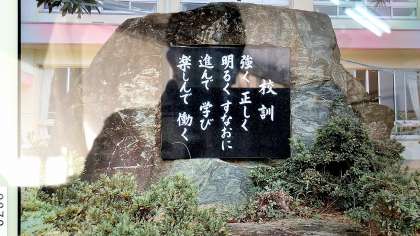 校訓
強く正しく
明るくすなおに
進んで 学び
楽しんで 働く